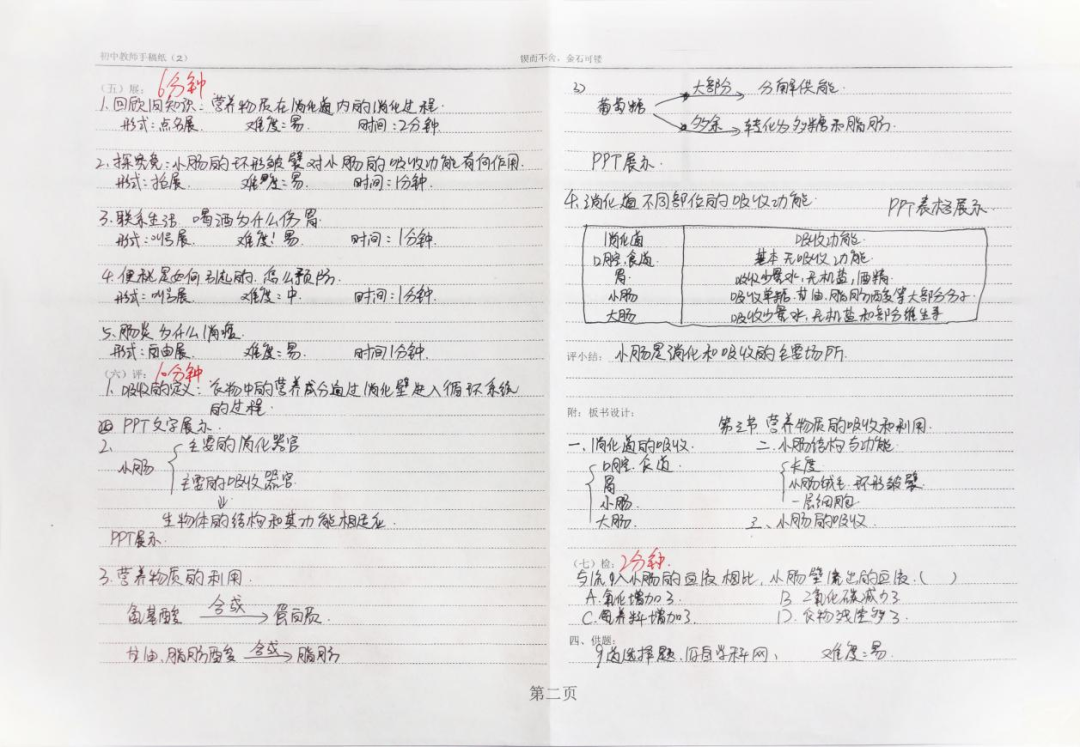 初中教师手稿纸（2）
锲而不舍，金石可镂
（五）展：6分钟
1.回顾旧知识：营养物质在消化道内的消化过程.
形式：点名展. 难度：易. 时间：2分钟.
2.探究竟：小肠的环形皱襞对小肠的吸收功能有何作用.
形式：抢展. 难度：易. 时间：1分钟.
3.联系生活 喝酒为什么伤胃.
形式：叫号展. 难度！易. 时间：1分钟.
4.便秘是如何引起的.怎么预防.
形式：叫号展. 难度：中. 时间：1分钟.
5.肠炎为什么消瘦.
形式：自由展. 难度：易. 时间1分钟.
（六）评：10分钟
1.吸收的定义：食物中的营养成分通过消化壁进入循环系统
的过程.
PPT文字展示.
2.
小肠
主要的消化器官
主要的吸收器官.
⇓
生物体的结构和其功能相适应.
PPT展示.
3.营养物质的利用.
氨基酸 合成 → 蛋白质.
甘油、脂肪酸 合成 → 脂肪
3)
葡萄糖
大部分 → 分解供能.
多余 → 转化为多糖和脂肪.
PPT展示.
4.消化道不同部位的吸收功能. PPT表格展示.
消化道 吸收功能.
口腔、食道. 基本无吸收功能.
胃 吸收少量水，无机盐，酒精.
小肠 吸收单糖.甘油.脂肪酸等大部分分子.
大肠 吸收少量水，无机盐和部分维生素
评小结：小肠是消化和吸收的主要场所.
附：板书设计：
第三节 营养物质的吸收和利用.
一.消化道的吸收. 二.小肠结构与功能.
口腔、食道. 长度
胃 小肠绒毛.环形皱襞
小肠 一层细胞
大肠. 三、小肠的吸收.
（七）检：2分钟.
与流入小肠的血液相比，小肠壁流出的血液.（ ）
A.氧化增加了. B 2氧化碳减少了
C.营养料增加了. D.食物残渣多了.
四、供题：
9道选择题、旧自学科网、 难度：易.
第二页